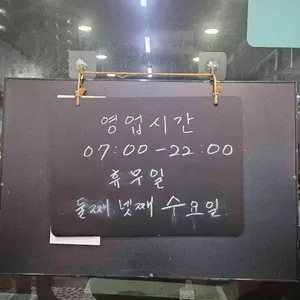 영업시간
07:00-22:00
휴무일
둘째.넷째 수요일.